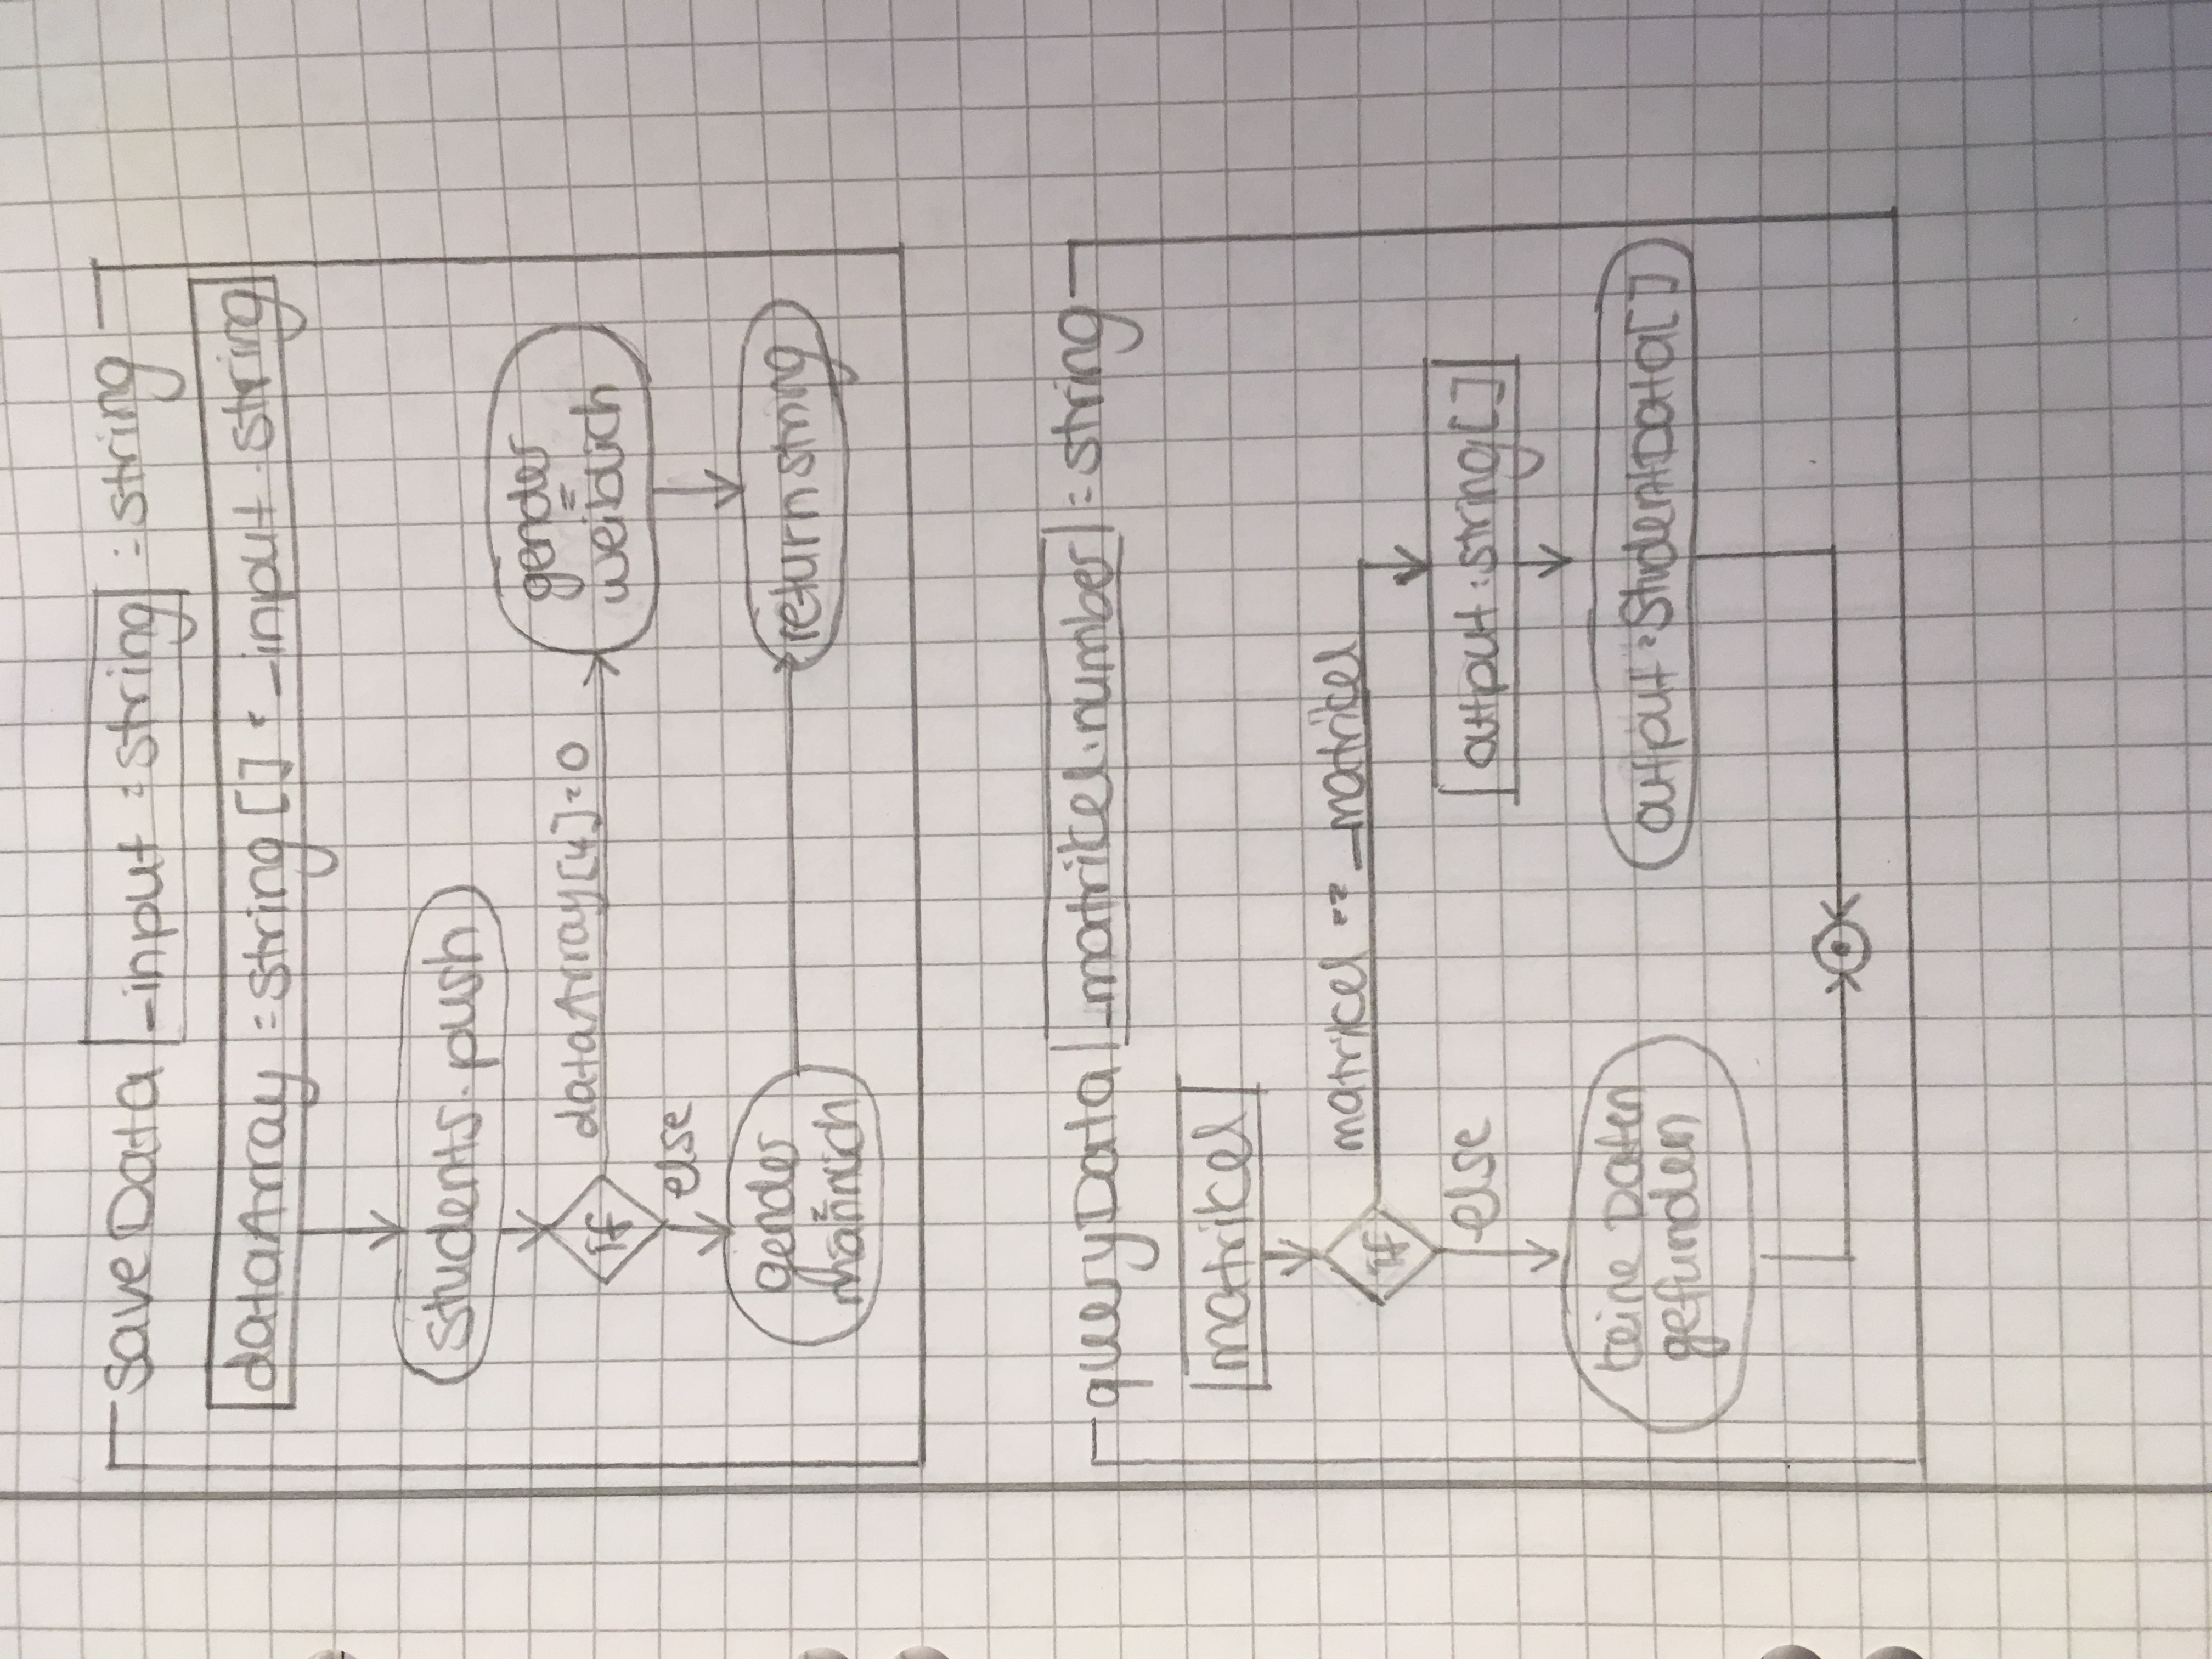 saveData _input : string : string
dataArray : string [] = _input . string
students.push
if dataArray[4] = 0
gender
=
weiblich
else
gender
=
männlich
return string
queryData _matrikel.number : string
matrikel
if matrikel == _matrikel
else
output : string[]
keine Daten
gefunden
output : StudentData[]